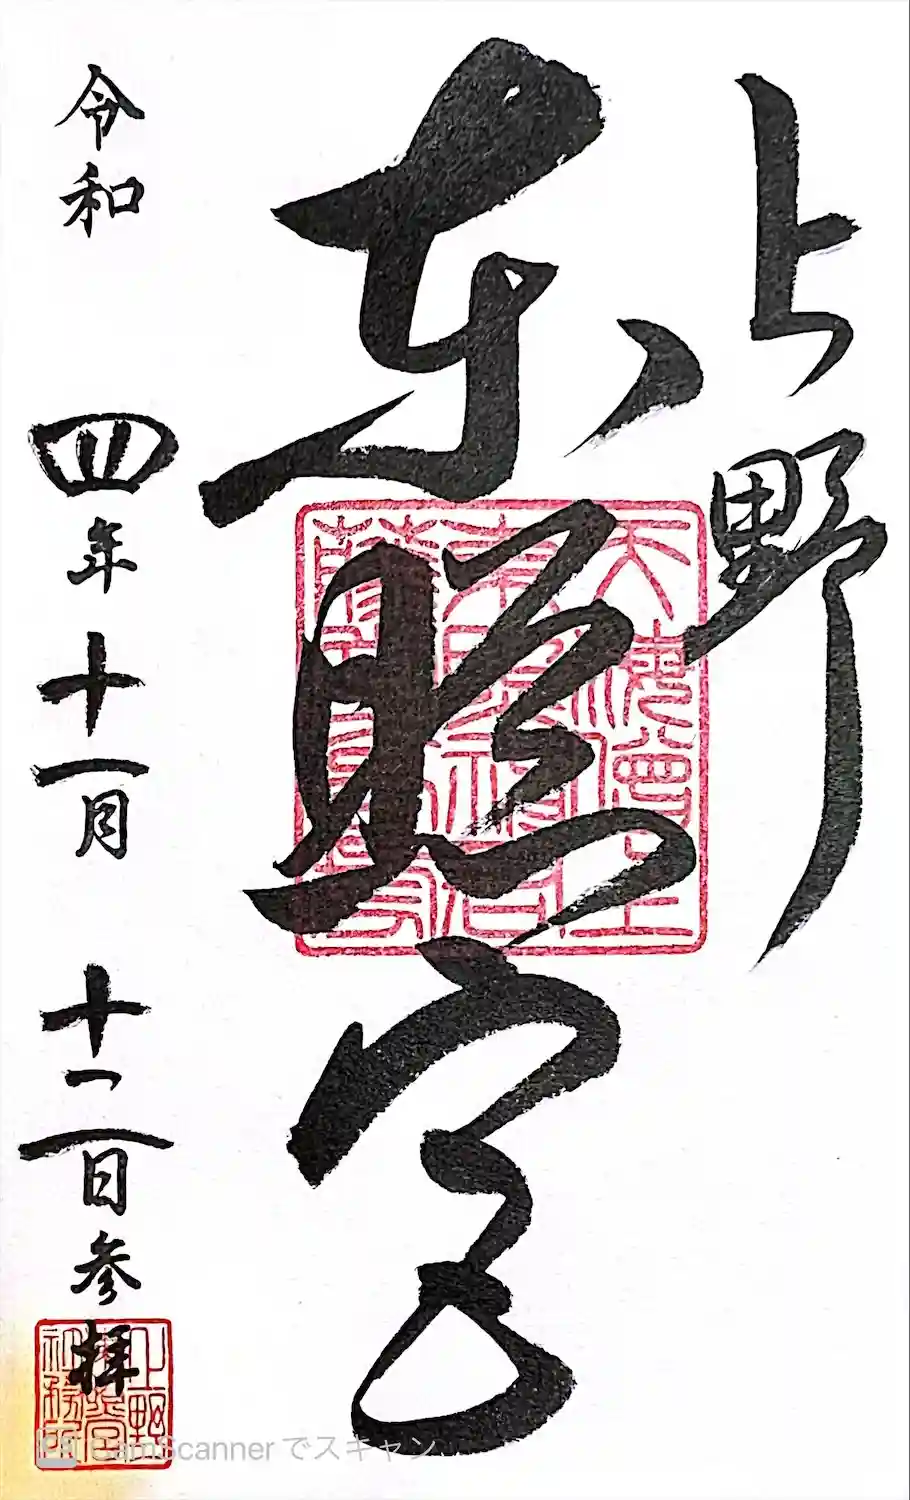 上野
東照宮
令和四年十一月十二日参拝
上野
東照宮
社務所
CamScannerでスキャン